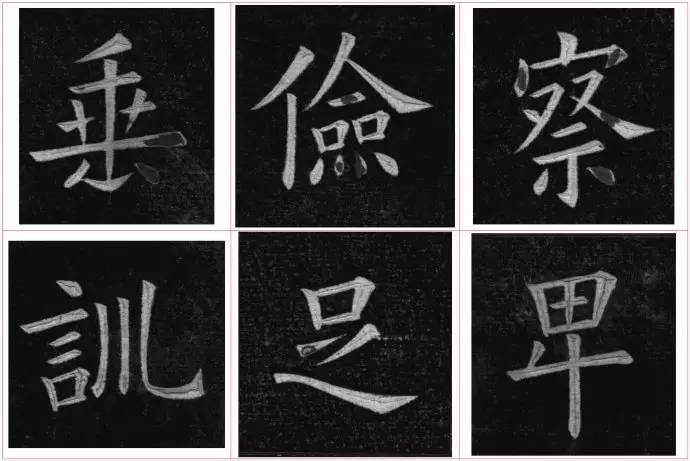 垂儉察
訓足卑